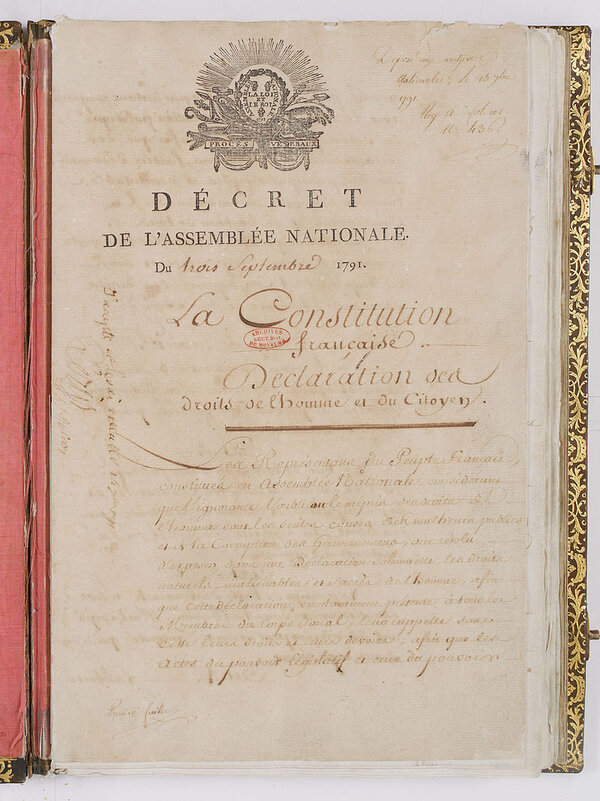 LA LOI
ET
LE ROI
PROCÈS VERBAUX
DÉCRET
DE L'ASSEMBLÉE NATIONALE.
Du trois Septembre 1791.
La Constitution
française.
Déclaration des
droits de l'homme et du Citoyen.
ARCHIVES
Les Représentans du Peuple Français,
constitués en Assemblée Nationale, considérant
que l'ignorance, l'oubli ou le mépris des droits de
l'homme sont les seules causes des malheurs publics
et de la Corruption des Gouvernemens, ont résolu
d'exposer, dans une Déclaration Solennelle, les droits
naturels, inaliénables et Sacrés de l'homme, afin
que cette déclaration, constamment présente à tous les
Membres du Corps Social, leur rappelle sans
cesse leurs droits et leurs devoirs; afin que les
Actes du pouvoir législatif et ceux du pouvoir